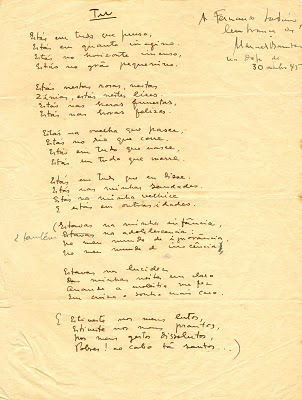 Tu
A Fernando Sabino,
lembrança de
Manuel Bandeira
30
45
Estás em tudo que penso,
Estás em quanto imagino:
Estás no horizonte imenso,
Estás no grão pequenino.
Estás nestas rosas, nestas
Estás nas horas funestas,
Estás nas horas felizes.
Estás na ovelha que pasce,
Estás no rio que corre,
Estás em tudo que nasce,
Estás em tudo que morre.
Estás em tudo que eu disse.
Estás nas minhas saudades.
Estás na minha velhice
E estás em outras idades.
(Estavas na minha infância,
Estavas na adolescência:
No meu mundo de ignorância,
No meu mundo de inocência)
Estavas na lucidez
Das minhas noites em claro
Quando a moléstia me fez
(Estiveste nos meus lutos,
Estiveste nos meus prantos,
Nos meus gestos dissolutos,
Pobres! ao cabo tão santos...)